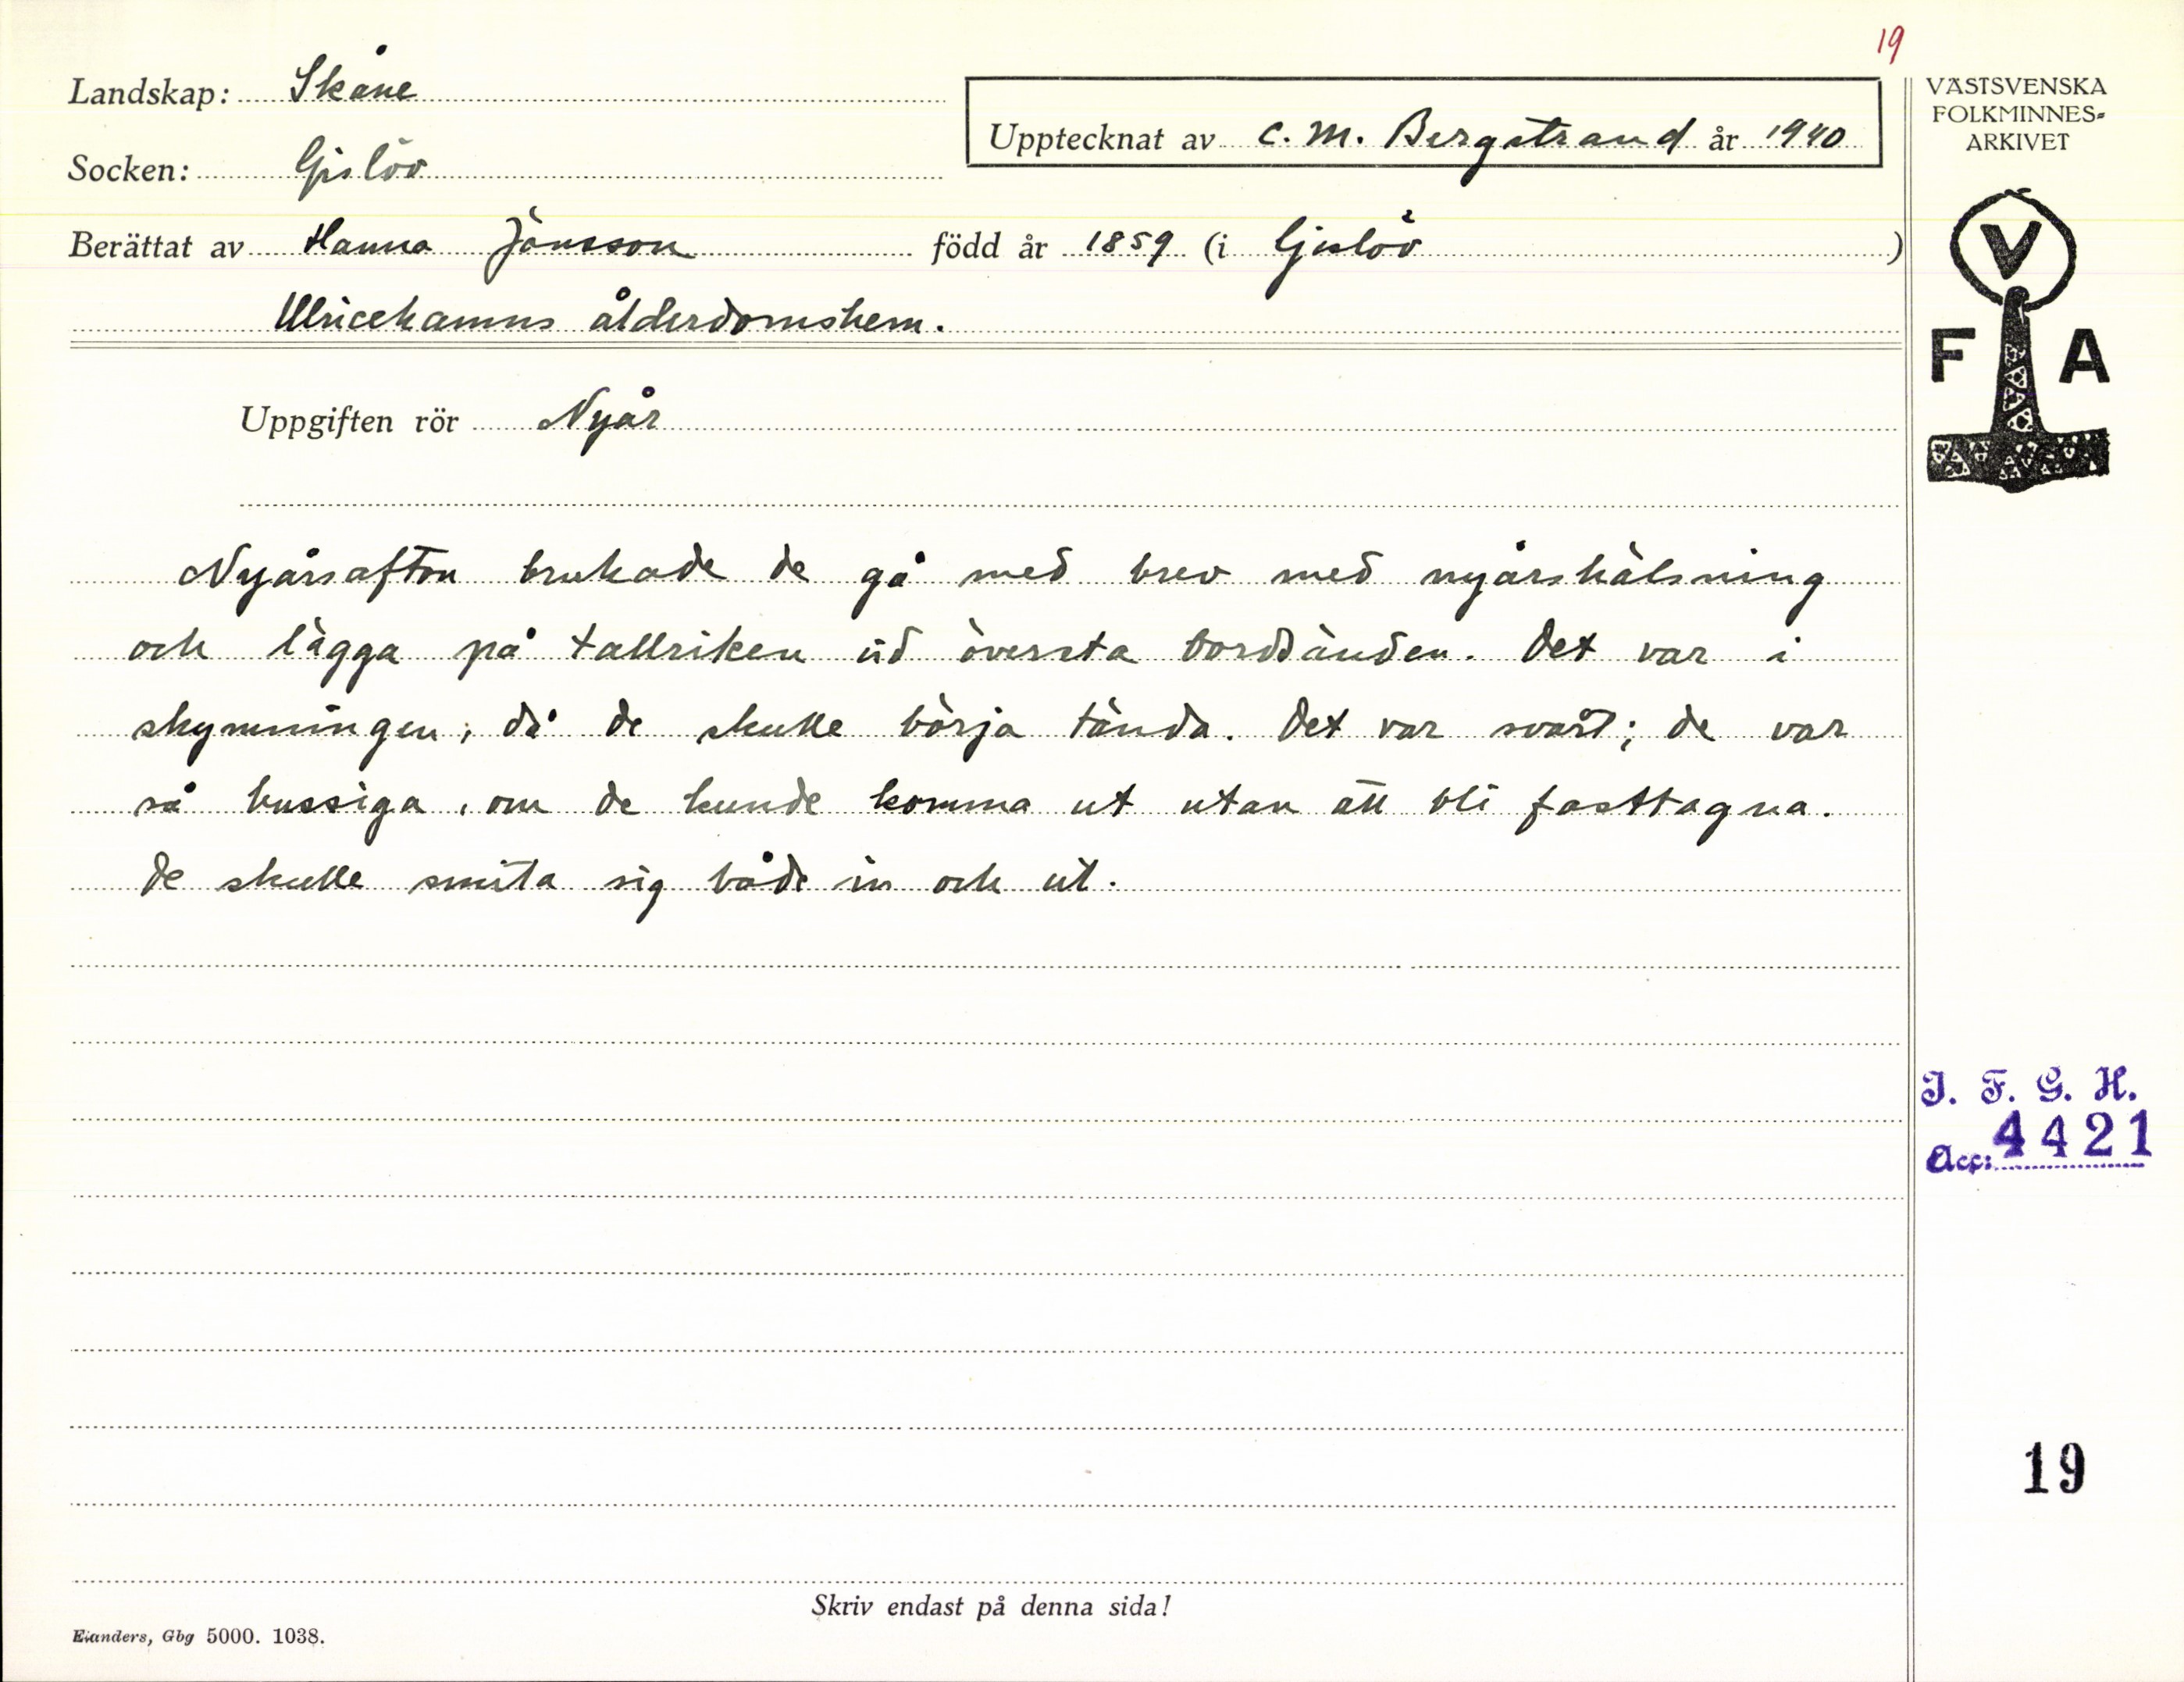 19
Landskap: Skåne
Upptecknat av C. M. Bergstrand år 1940
Socken: Gislöv
Berättat av Hanna Jönsson född år 1859 (i Gislöv)
Ulricehamns ålderdomshem.
Uppgiften rör Nyår
Nyårsafton brukade de gå med brev med nyårshälsning
och lägga på tallriken vid översta bordsänden. Det var i
skymningen, då de skulle börja tända. Det var svårt; de var
så bussiga, om de kunde komma ut utan att bli fasttagna.
De skulle smita sig både in och ut.
VÄSTSVENSKA
FOLKMINNES=
ARKIVET
V
F A
I. F. G. H.
Acc: 4421
19
Skriv endast på denna sida!
Elanders, Gbg 5000. 1038.